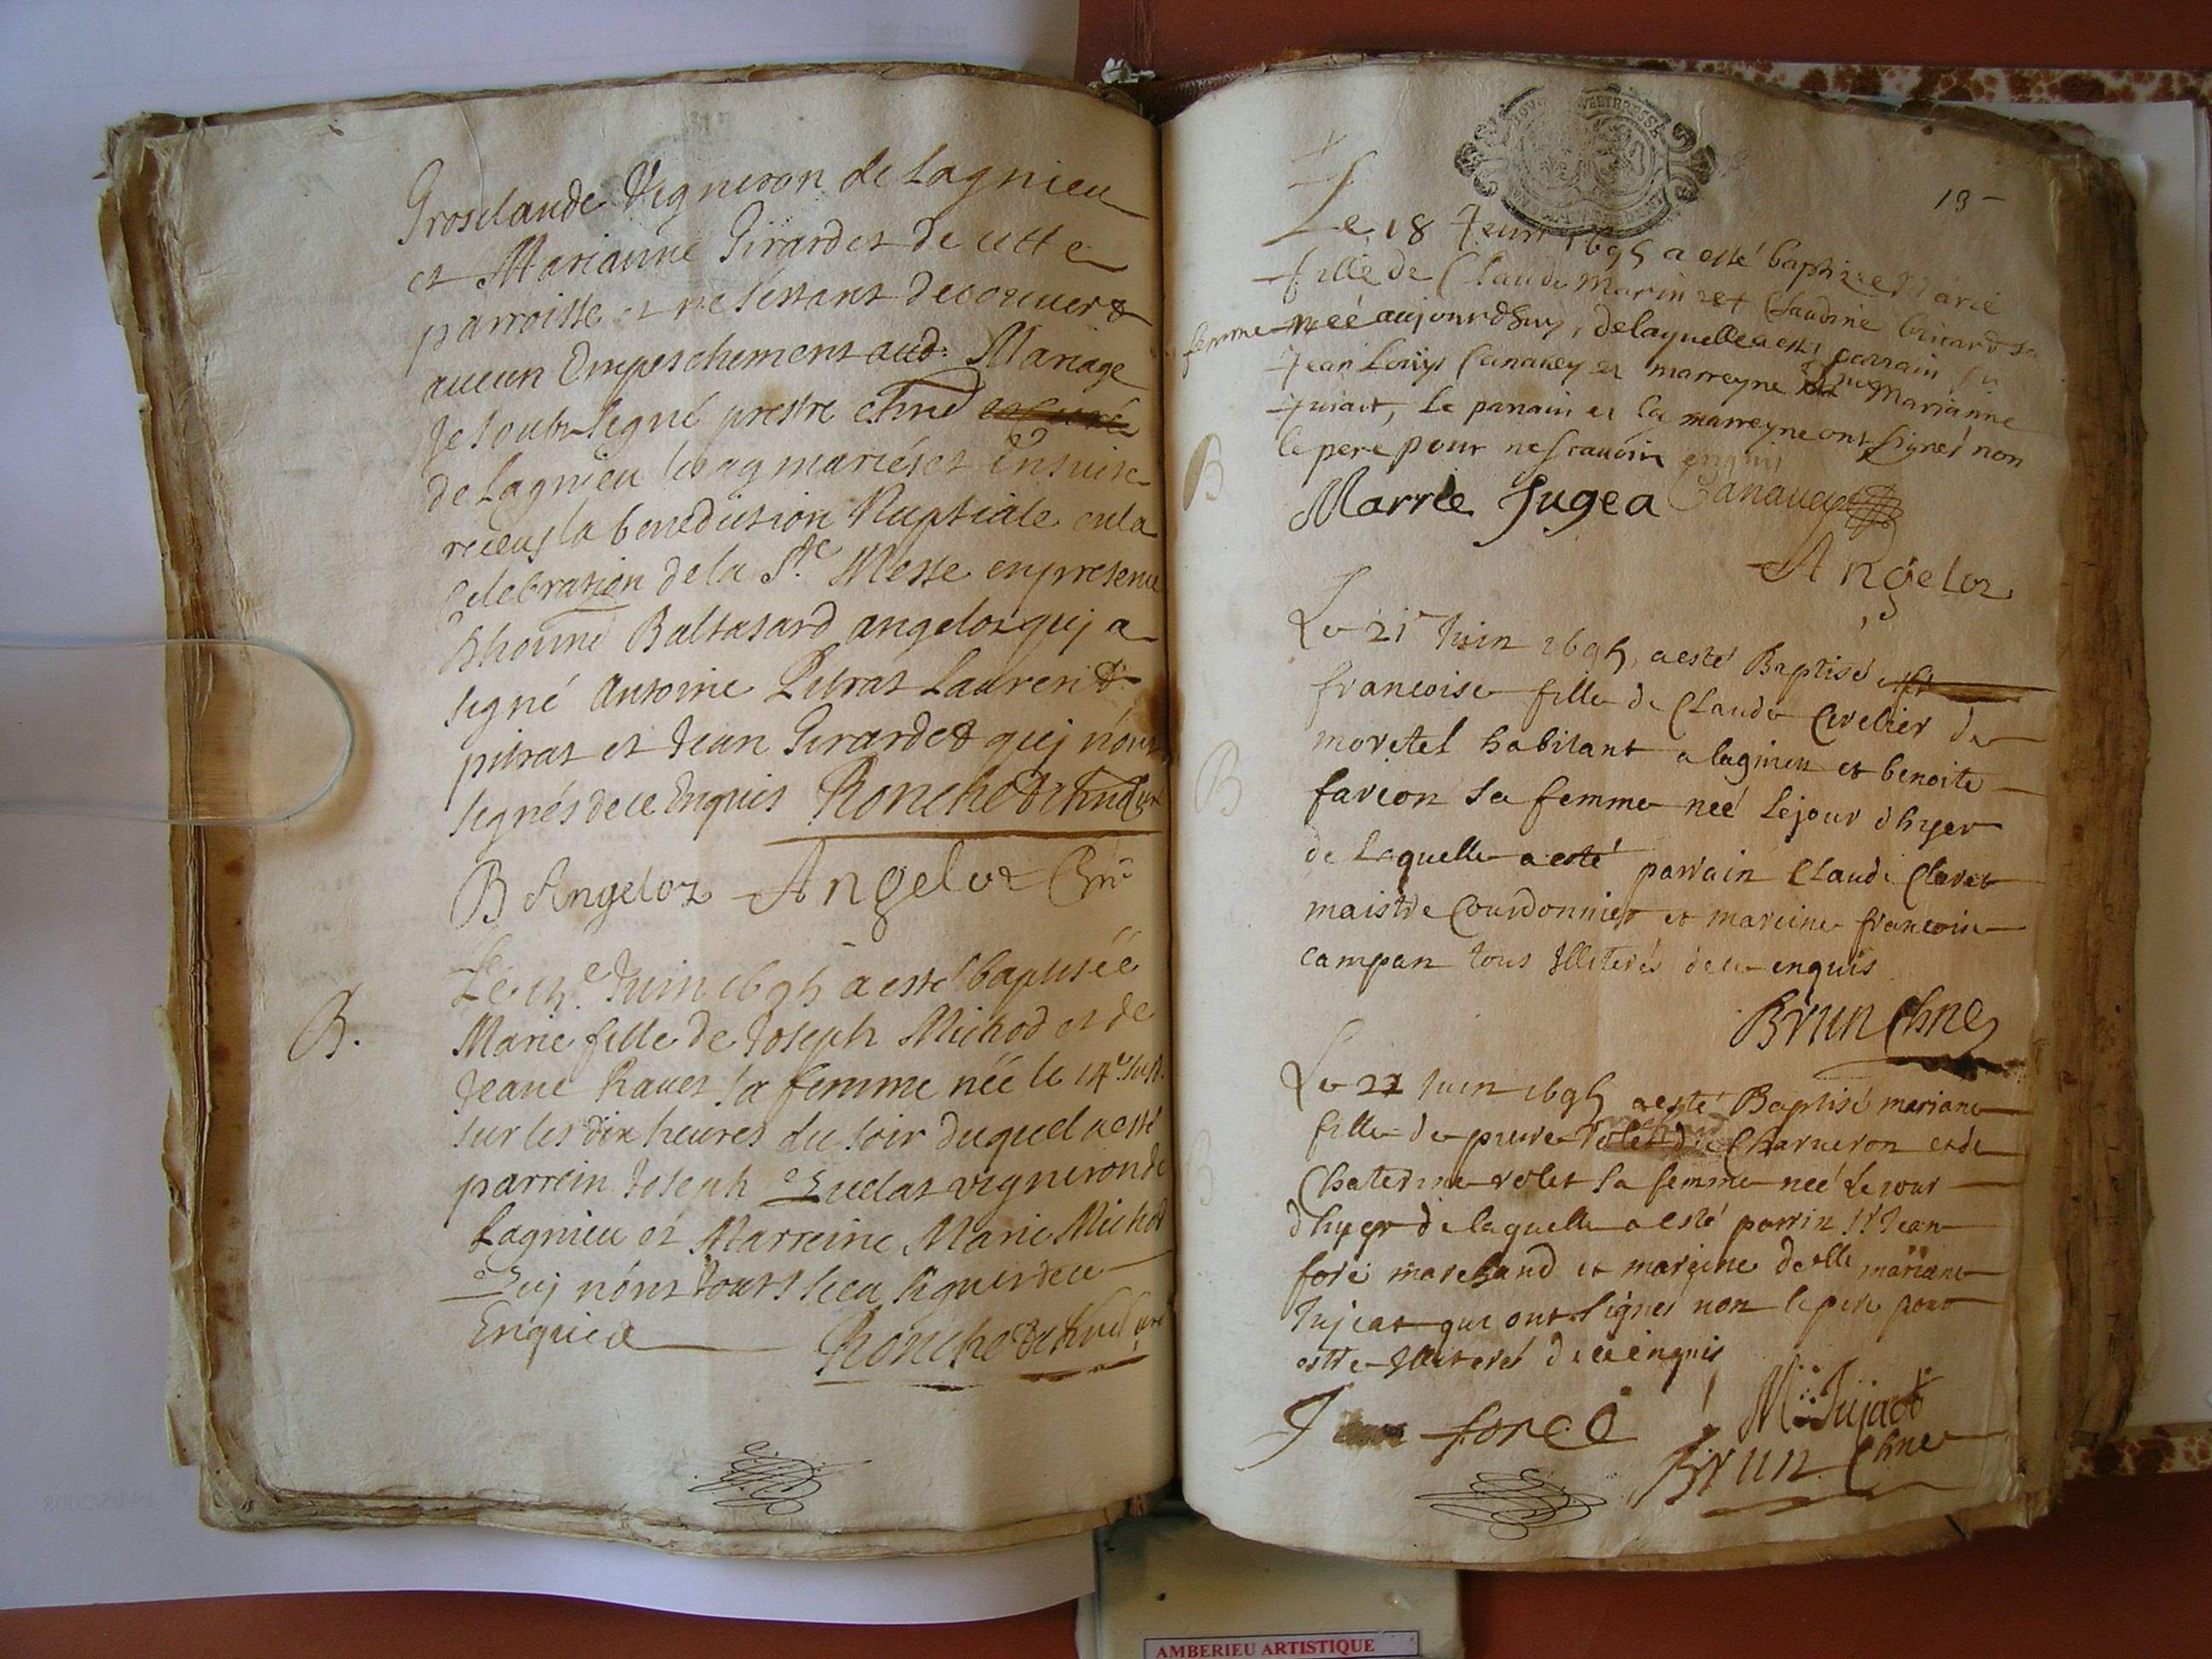 Grosclaude Vigneron de Lagnieu
et Marianne Girardet de cette
parroisse et ne sestant decouvert
aucun Empeschement aud: Mariage
Je soubsigné prestre chne
de Lagnieu les ay mariés et Ensuite
receus la benediction Nuptiale en la
Celebration de la Ste Messe en presence
dhonne Baltasard angeloz quj a
signé Antoine Pitrat Laurent
pitrat et Jean Girardet quj n'ont
signés de ce Enquis Ronchet chne Curé
B Angeloz Angeloz Chne
B.
Le 15e Juin 1695 a esté baptisée
Marie fille de Joseph Michod et de
Jeane Ravet sa femme née le 14e
sur les dix heures du soir duquel a esté
parrein Joseph vigneron de
Lagnieu et Marreine Marie Michod
Quj n'ont tous sceu signer de ce
Enquis Ronchet chne curé
13
Le 18 Juin 1695 a esté baptizée Marie
fille de Claude Marin et Claudine sa
femme née aujourdhuy, de laquelle a esté parrain
Jean Louys Canavey et marreyne Marianne
Jujat, le parrain et la marreyne ont signés non
le pere pour ne scavoir enquis
B
Marrie Jugea Canavey
Angeloz
Le 21 Juin 1695 a esté Baptisé
francoise fille de Claude Cevelier de
moretel habitant a lagnieu et benoite
B
favion sa femme née Le jour dhyer
de Laquelle a esté parrain Claude Claret
maistre Courdonnier et mareine francoise
campan tous Illiterés de ce enquis
Brun Chne
Le 22 Juin 1695 a esté Baptisé mariane
fille de pierre Charveron et de
B
Chaterine rolet sa femme née Le jour
dhyer de laquelle a esté parrin Sr Jean
foré marchand et mareine delle mariane
Jujeat qui ont signés non le pere pour
estre Illiteré de ce enquis
forcé M Jujact
Brun Chne
AMBERIEU ARTISTIQUE